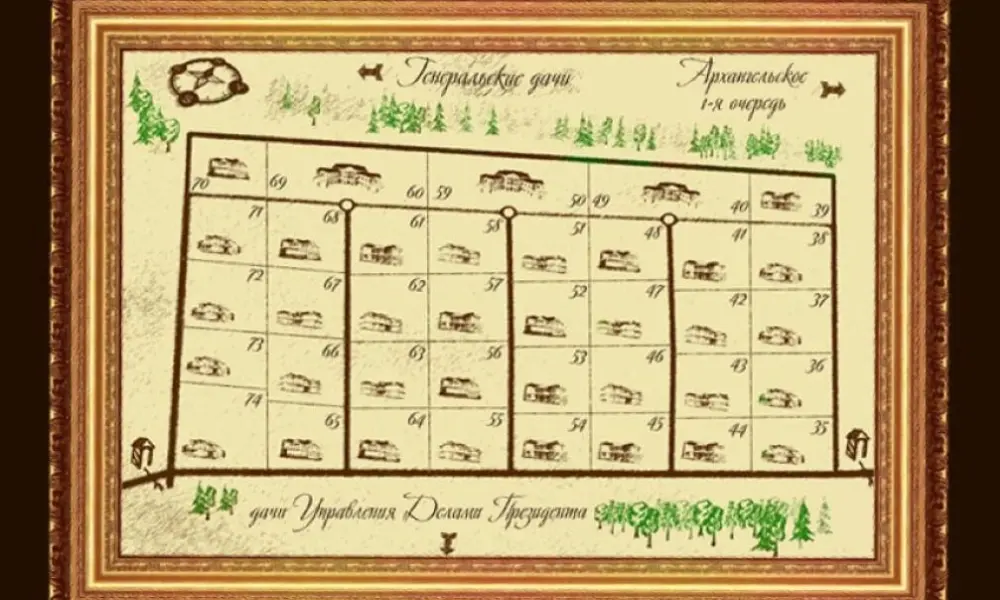 Генеральские дачи
Архангельское
1-я очередь
70 69 60 59 50 49 40 39
71 68 61 58 51 48 41 38
72 67 62 57 52 47 42 37
73 66 63 56 53 46 43 36
74 65 64 55 54 45 44 35
дачи Управления Делами Президента